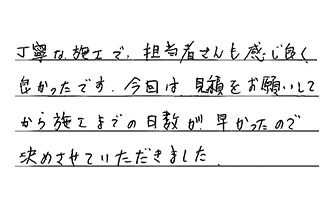 丁寧な施工で、担当者さんも感じ良く
良かったです。今回は、見積をお願いして
から施工までの日数が、早かったので
決めさせていただきました。